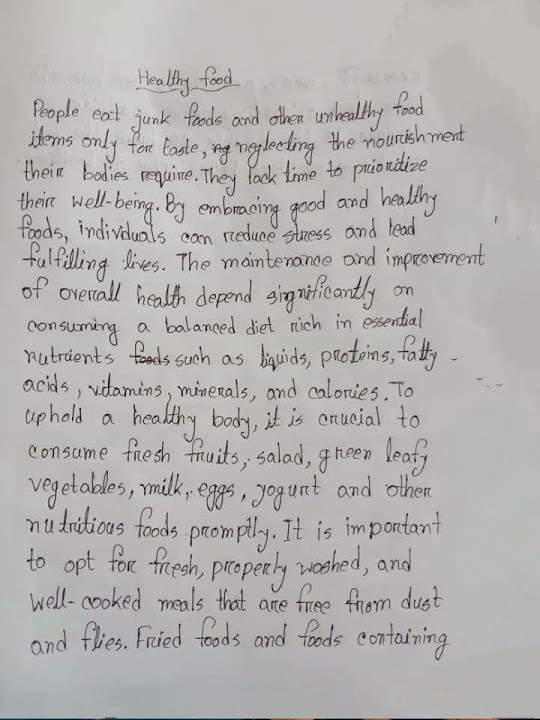 Healthy food
People eat junk foods and other unhealthy food
items only for taste, ng neglecting the nourishment
their bodies require. They lack time to prioritize
their well-being. By embracing good and healthy
foods, individuals can reduce stress and lead
fulfilling lives. The maintenance and improvement
of overall health depend significantly on
consuming a balanced diet rich in essential
nutrients foods such as liquids, proteins, fatty
acids, vitamins, minerals, and calories. To
uphold a healthy body, it is crucial to
consume fresh fruits, salad, green leafy
vegetables, milk, eggs, yogurt and other
nutritious foods promptly. It is important
to opt for fresh, properly washed, and
well-cooked meals that are free from dust
and flies. Fried foods and foods containing